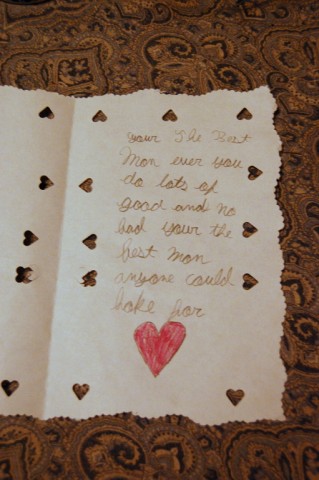 your The Best
Mom ever you
do lots of
good and no
bad your the
best Mom
anyone could
hoke for